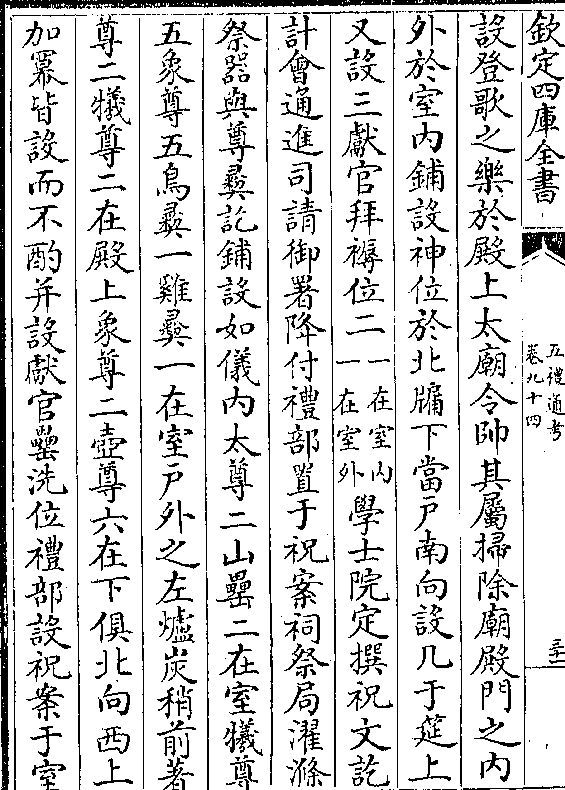 欽定四庫全書
五禮通考
卷九十四
三十一
設登歌之樂於殿上太廟令帥其屬掃除廟殿門之内
外於室内鋪設神位於北牖下當戸南向設几于筵上
又設三獻官拜褥位二一在室内一在室外學士院定撰祝文訖
計會通進司請御署降付禮部置于祝案祠祭局濯滌
祭器與尊彝訖鋪設如儀内太尊二山罍二在室犧尊
五象尊五鳥彝一雞彝一在室戸外之左爐炭稍前著
尊二犧尊二在殿上象尊二壺尊六在下俱北向西上
加羃皆設而不酌并設獻官罍洗位禮部設祝案于室